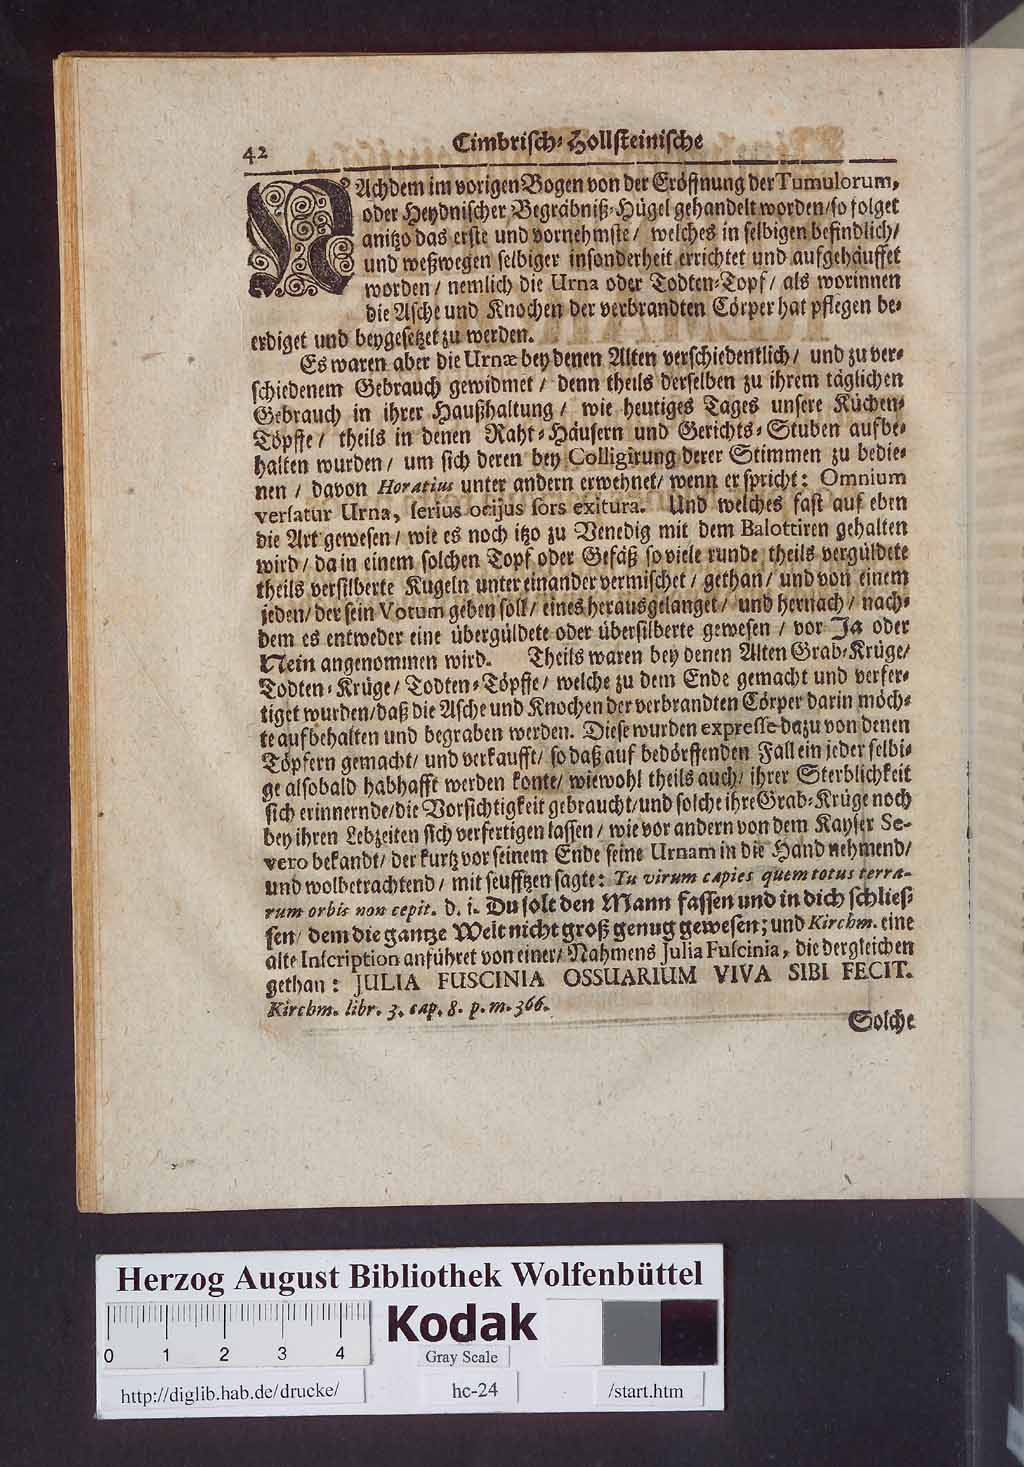 42
Cimbrisch-Hollsteinische
NAchdem im vorigen Bogen von der Eröffnung der Tumulorum,
oder Heydnischer Begräbniß-Hügel gehandelt worden/ so folget
anitzo das erste und vornehmste/ welches in selbigen befindlich/
und weßwegen selbiger insonderheit errichtet und aufgehäuffet
worden/ nemlich die Urna oder Todten-Topf/ als worinnen
die Asche und Knochen der verbrandten Cörper hat pflegen be-
erdiget und beygesetzet zu werden.
Es waren aber die Urnæ bey denen Alten verschiedentlich/ und zu ver-
schiedenem Gebrauch gewidmet/ denn theils derselben zu ihrem täglichen
Gebrauch in ihrer Haußhaltung/ wie heutiges Tages unsere Küchen-
Töpffe/ theils in denen Raht-Häusern und Gerichts-Stuben aufbe-
halten wurden/ um sich deren bey Colligirung derer Stimmen zu bedie-
nen/ davon Horatius unter andern erwehnet/ wenn er spricht: Omnium
versatur Urna, serius ocijus sors exitura. Und welches fast auf eben
die Art gewesen/ wie es noch itzo zu Venedig mit dem Balottiren gehalten
wird/ da in einem solchen Topf oder Gefäß so viele runde theils vergüldete
theils versilberte Kugeln unter einander vermischet/ gethan/ und von einem
jeden/ der sein Votum geben soll/ eines herausgelanget/ und hernach/ nach-
dem es entweder eine übergüldete oder übersilberte gewesen/ vor Ja oder
Nein angenommen wird. Theils waren bey denen Alten Grab-Krüge/
Todten-Krüge/ Todten-Töpffe/ welche zu dem Ende gemacht und verfer-
tiget wurden/ daß die Asche und Knochen der verbrandten Cörper darin möch-
te aufbehalten und begraben werden. Diese wurden expresse dazu von denen
Töpfern gemacht/ und verkaufft/ so daß auf bedörffenden Fall ein jeder selbi-
ge alsobald habhafft werden konte/ wiewohl theils auch/ ihrer Sterblichkeit
sich erinnernde/ die Vorsichtigkeit gebraucht/ und solche ihre Grab-Krüge noch
bey ihren Lebzeiten sich verfertigen lassen/ wie vor andern von dem Kayser Se-
vero bekandt/ der kurtz vor seinem Ende seine Urnam in die Hand nehmend/
und wolbetrachtend/ mit seufftzen sagte: Tu virum capies quem totus terra-
rum orbis non cepit. d. i. Du solt den Mann fassen und in dich schlies-
sen/ dem die gantze Welt nicht groß genug gewesen; und Kirchm. eine
alte Inscription anführet von einer/ Nahmens Julia Fuscinia, die dergleichen
gethan: JULIA FUSCINIA OSSUARIUM VIVA SIBI FECIT.
Kirchm. libr. 3. cap. 8. p. m. 366.
Solche
Herzog August Bibliothek Wolfenbüttel
0 1 2 3 4
Kodak
Gray Scale
http://diglib.hab.de/drucke/
hc-24
/start.htm